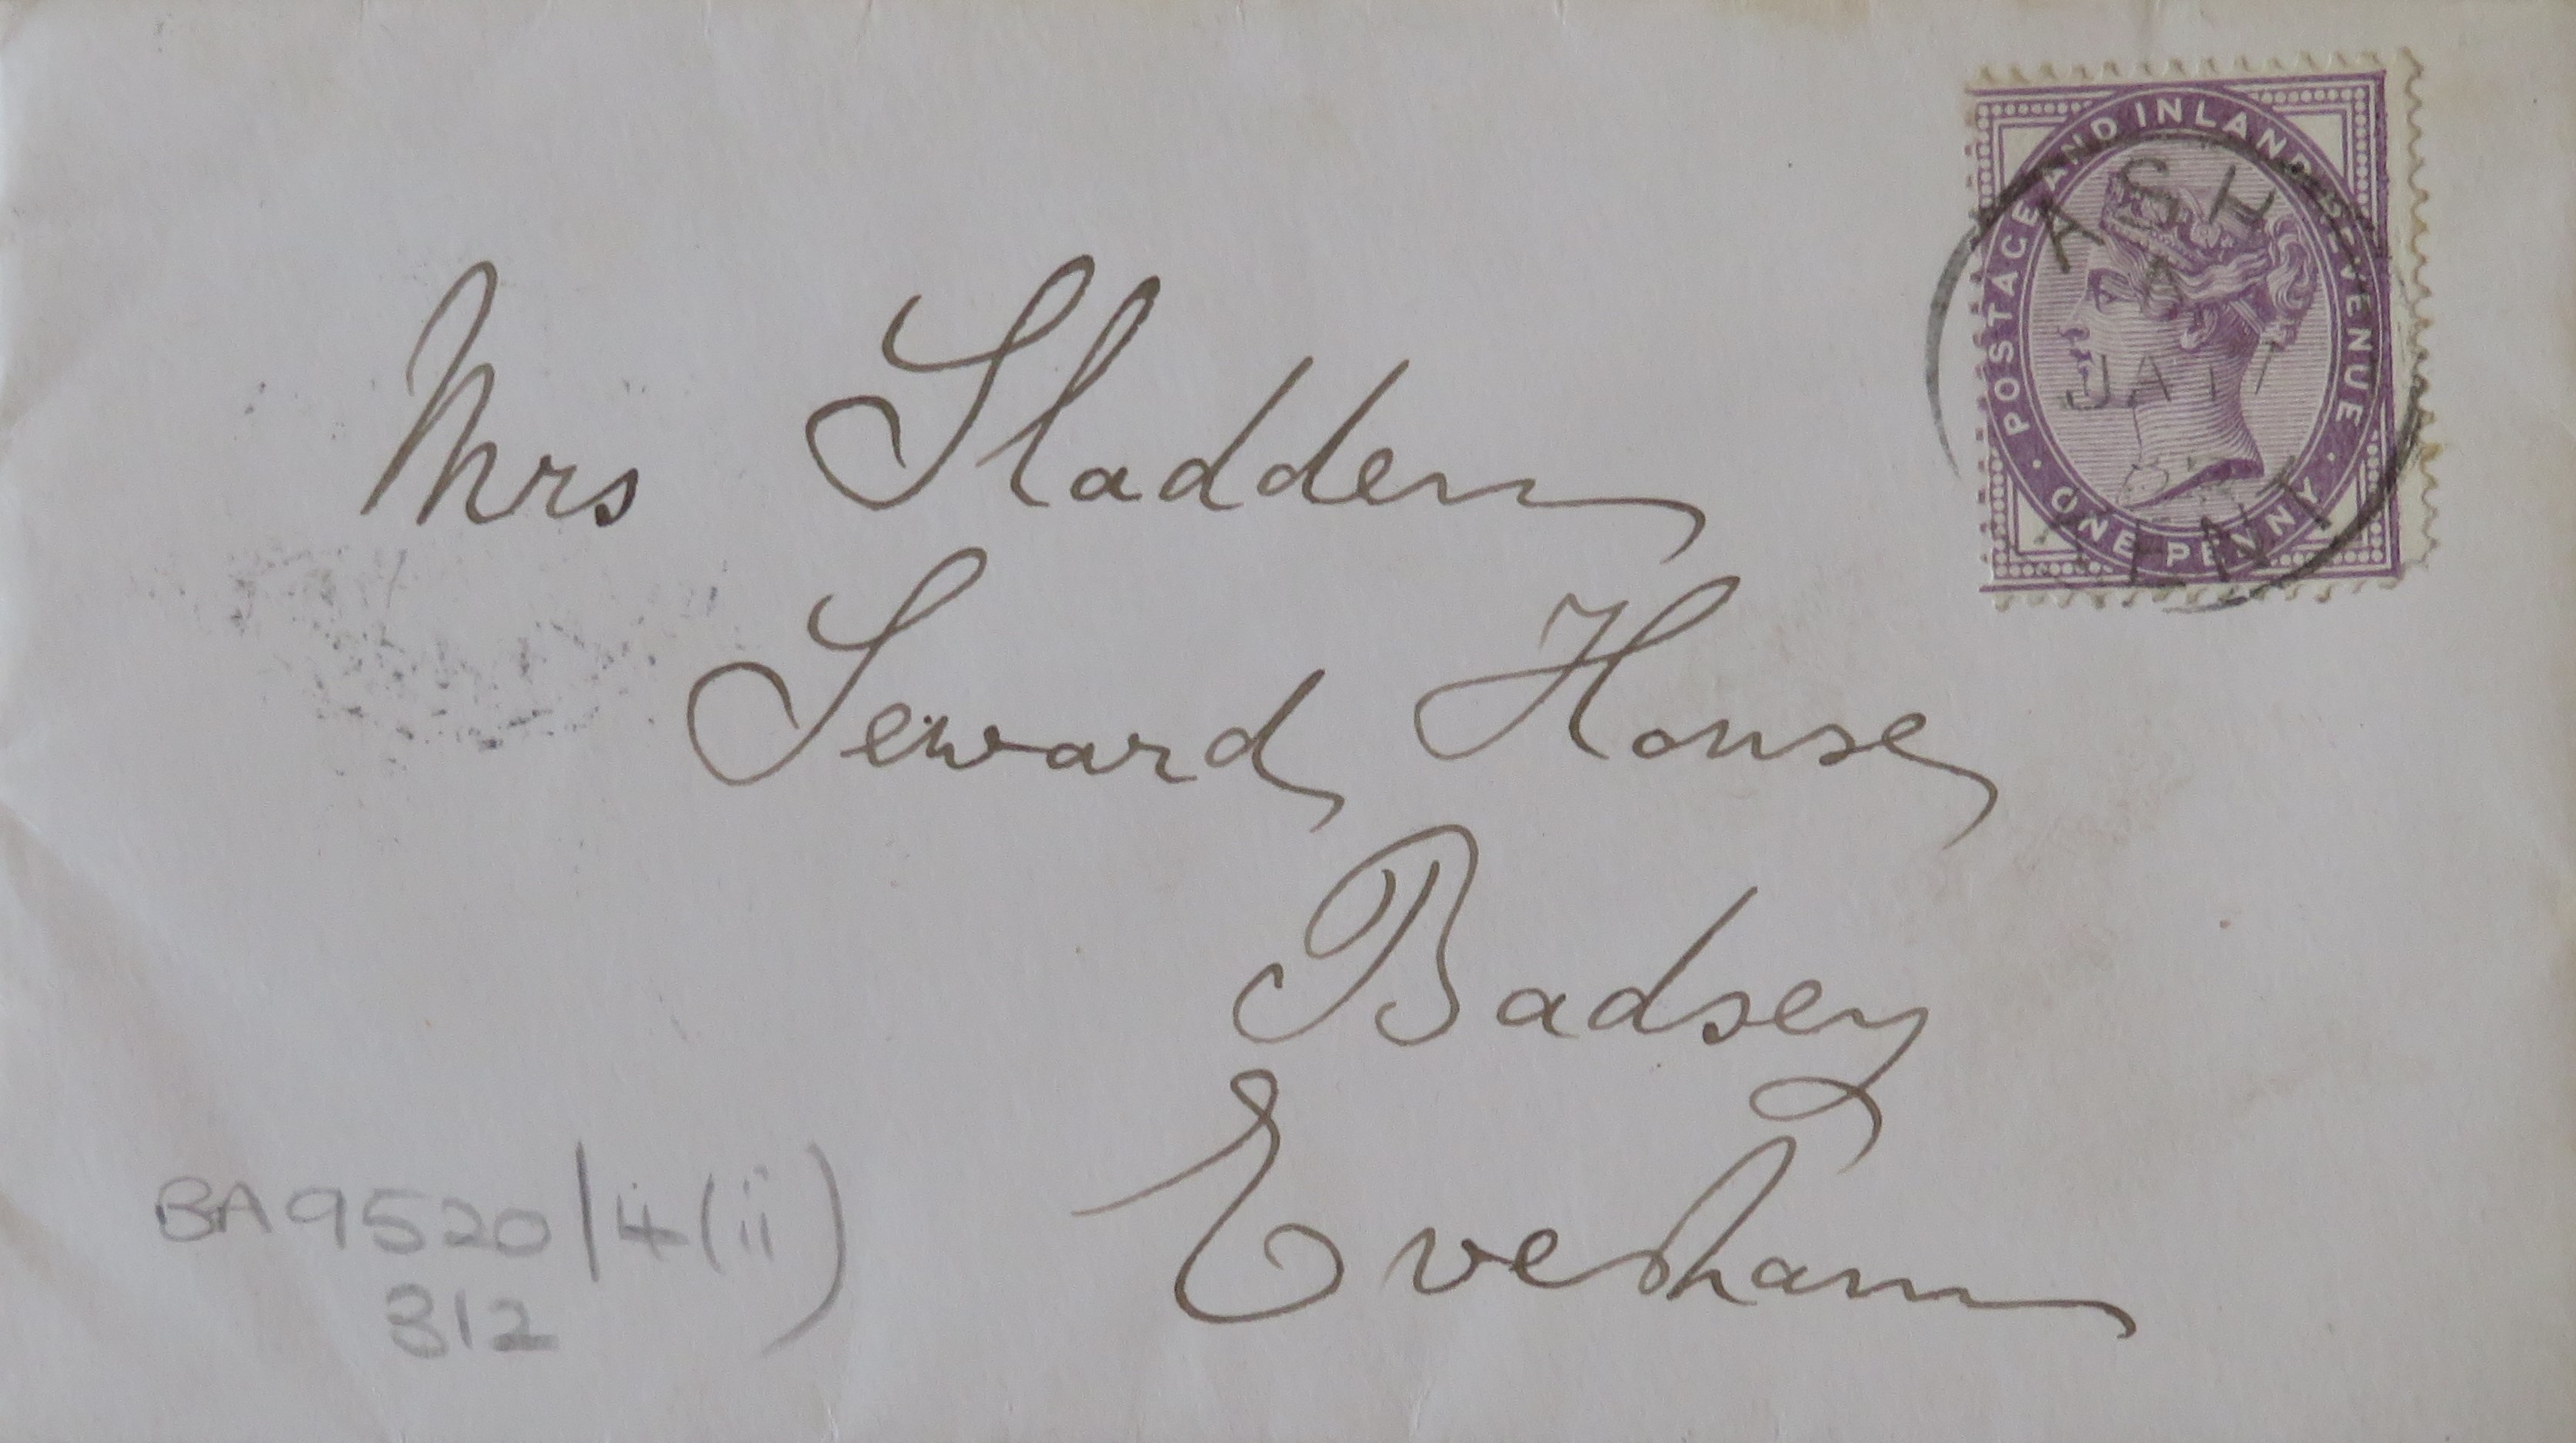 POSTAGE AND INLAND REVENUE
ONE PENNY
ASH
A
JA 17
Mrs Sladden
Seward House
Badsey
Evesham
BA9520/4(ii)
312